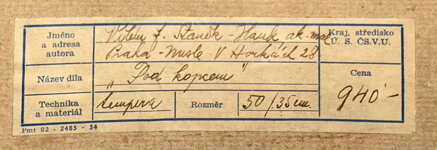 Jméno
a adresa
autora
Vilém J. Staněk - Hauk ak. mal.
Praha - Nusle V Horkách 28
Kraj, středisko
Ú. S. ČS.V.U.
Název díla
„Pod kopcem"
Cena
940 -
Technika
a materiál
tempera
Rozměr
50/35 cm.
Pmt 02 - 2485 - 54